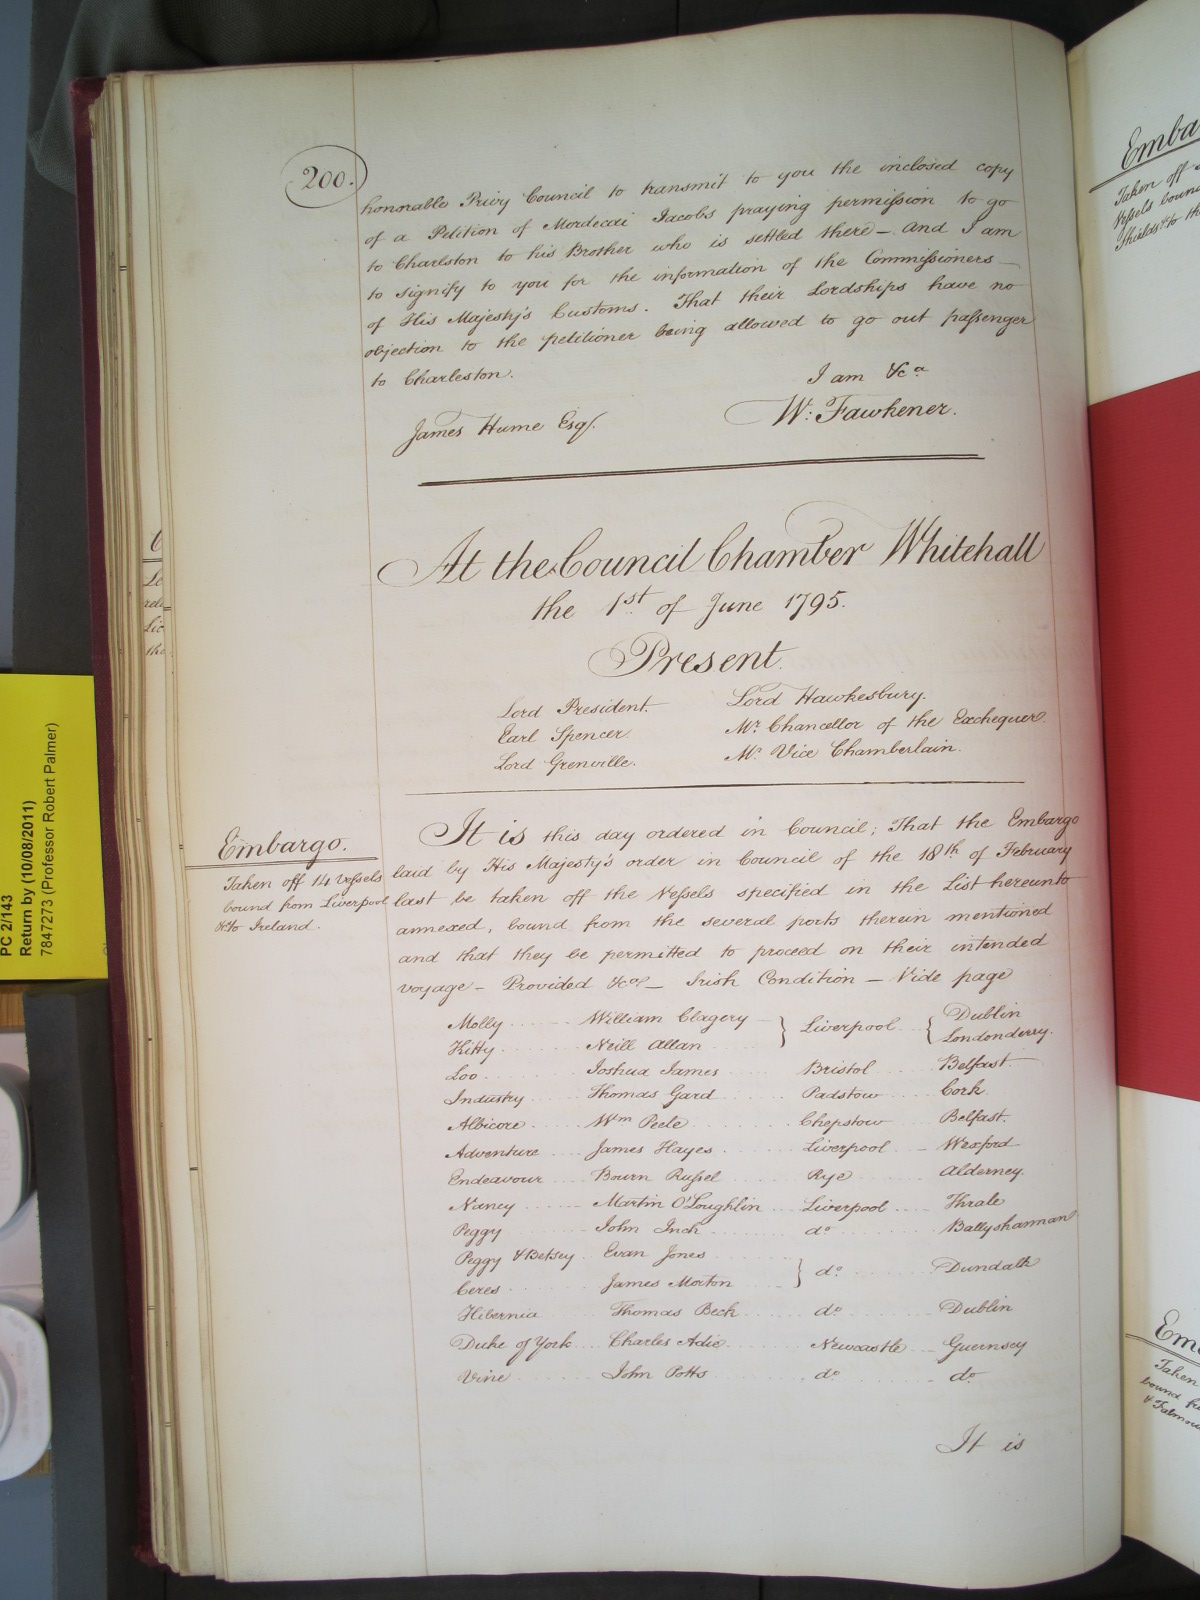 200.
honorable Privy Council to transmit to you the inclosed copy
of a Petition of Mordecai Jacobs praying permission to go
to Charlston to his Brother who is settled there – and I am
to signify to you for the information of the Commissioners –
of His Majesty's Customs. That their Lordships have no
objection to the petitioner being allowed to go out passenger
to Charleston.
I am &ca
W: Fawkener.
James Hume Esqr.
At the Council Chamber Whitehall
the 1st of June 1795.
Present.
Lord President. Lord Hawkesbury.
Earl Spencer Mr. Chancellor of the Exchequer.
Lord Grenville. Mr. Vice Chamberlain.
Embargo.
Taken off 14 Vessels
bound from Liverpool
&c to Ireland.
It is this day ordered in Council; That the Embargo
laid by His Majesty's order in Council of the 18th of February
last be taken off the Vessels specified in the List hereunto
annexed, bound from the several ports therein mentioned
and that they be permitted to proceed on their intended
voyage – Provided &ca – Irish Condition – Vide page
Molly William Clagery } Liverpool { Dublin
Kitty Neill Allan Londonderry.
Loo Joshua James Bristol Belfast.
Industry Thomas Gard Padstow Cork
Albicore Wm Peele Chepstow Belfast.
Adventure James Hayes Liverpool Wexford
Endeavour Bourn Russel Rye Alderney.
Nancy Martin O'Loughlin Liverpool Thrale
Peggy John Inch do Ballyshannan
Peggy & Betsey Evan Jones
Ceres James Morton } do Dundalk
Hibernia Thomas Beck do Dublin
Duke of York Charles Adie Newcastle Guernsey
Vine John Potts do do
It is
PC 2/143
Return by (10/08/2011)
7847273 (Professor Robert Palmer)
Emba
Taken off
Vessels boun
Shields &c to th
Em
Taken
bound
& Falmou